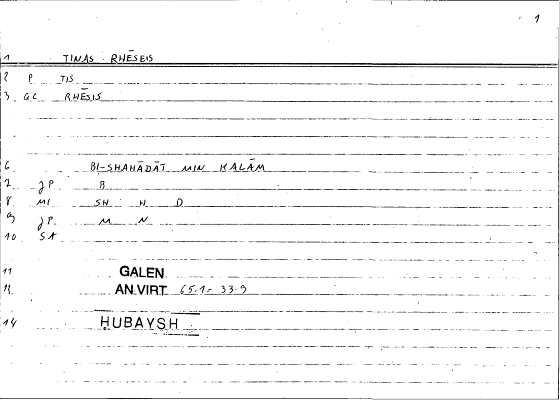 1
1 TINAS RHĒSEIS
2 P TIS
3 GC RHĒSIS
6 BI-SHAHĀDĀT MIN KALĀM
7 JP B
8 MI SH H D
9 JP M N
10 SA
11 GALEN
12 AN.VIRT 65.1 = 33.9
14 HUBAYSH